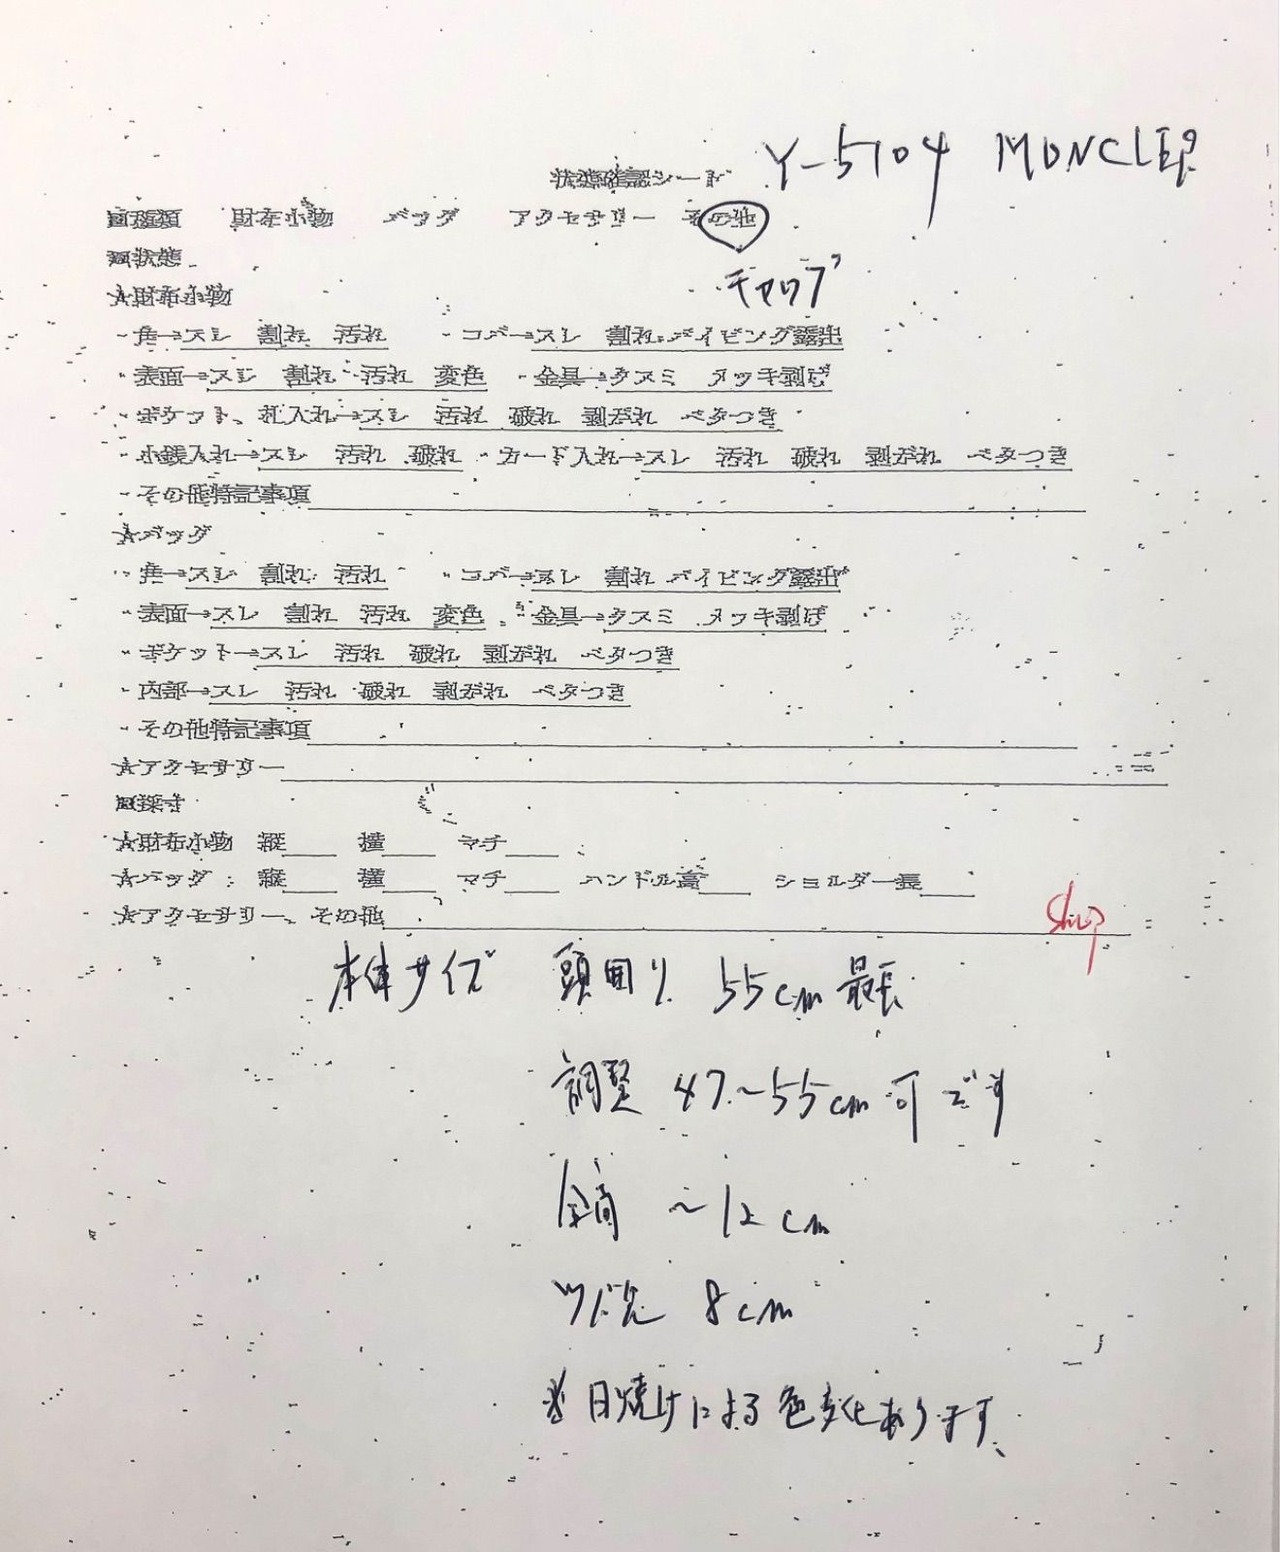 Y-5104 MONCLER
状態確認シート
□種類 財布小物 バッグ アクセサリー その他
キャップ
□状態
★財布小物
・角→スレ 割れ 汚れ ・コバ→スレ 割れ パイピング露出
・表面→スレ 割れ 汚れ 変色 ・金具→クスミ メッキ剥げ
・ポケット、札入れ→スレ 汚れ 破れ 剥がれ ベタつき
・小銭入れ→スレ 汚れ 破れ ・カード入れ→スレ 汚れ 破れ 剥がれ ベタつき
・その他特記事項
★バッグ
・角→スレ 割れ 汚れ ・コバ→スレ 割れ パイピング露出
・表面→スレ 割れ 汚れ 変色 ・金具→クスミ メッキ剥げ
・ポケット→スレ 汚れ 破れ 剥がれ ベタつき
・内部→スレ 汚れ 破れ 剥がれ ベタつき
・その他特記事項
★アクセサリー
□採寸
★財布小物 縦 横 マチ
★バッグ: 縦 横 マチ ハンドル高 ショルダー長
★アクセサリー、その他
Ship
本体サイズ 頭囲り 55cm 最長
調整 47~55cm 可です
全高 ~12cm
ツバ先 8cm
※日焼けによる色変化あります、